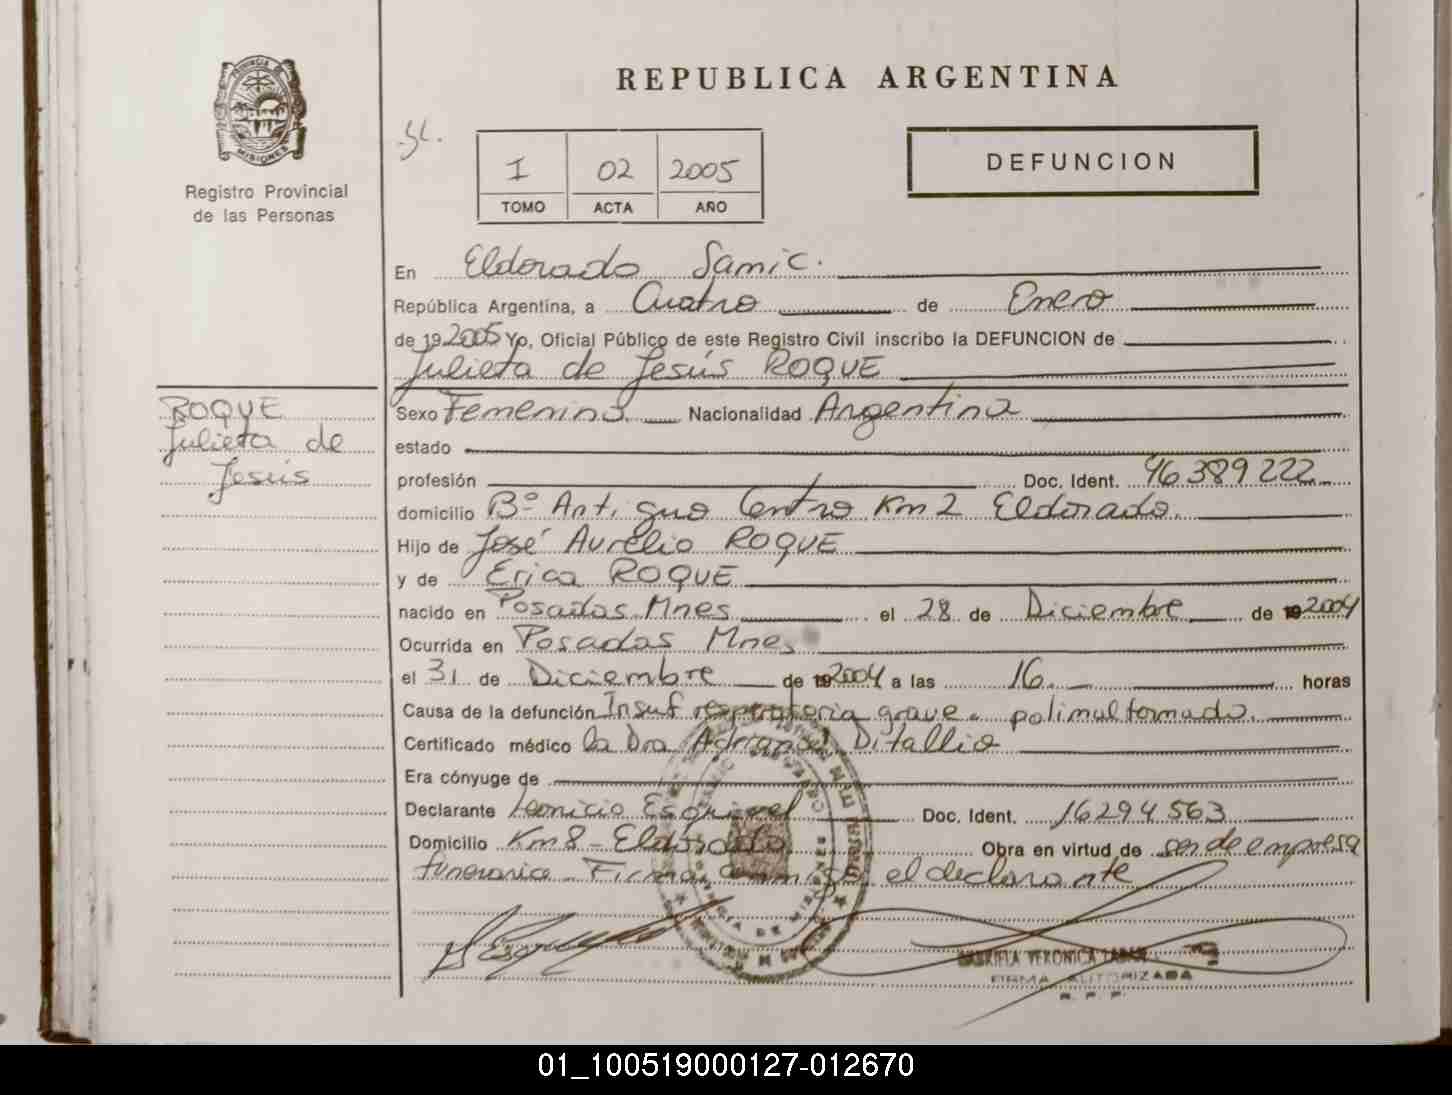 PROVINCIA DE
MISIONES
Registro Provincial
de las Personas
REPUBLICA ARGENTINA
I 02 2005
TOMO ACTA AÑO
DEFUNCION
En Eldorado Samic.
República Argentina, a Cuatro de Enero
de 19 2005 Yo, Oficial Público de este Registro Civil inscribo la DEFUNCION de
Julieta de Jesús ROQUE
ROQUE
Julieta de
Jesús
Sexo Femenino Nacionalidad Argentina
estado
profesión Doc. Ident. 46 389 222
domicilio Bº Antiguo Centro Km 2 Eldorado.
Hijo de José Aurelio ROQUE
y de Erica ROQUE
nacido en Posadas Mnes el 28 de Diciembre de 19 2004
Ocurrida en Posadas Mnes
el 31 de Diciembre de 19 2004 a las 16 horas
Causa de la defunción Insuf respiratoria grave. polimalformado.
Certificado médico la Dra Adriana Ditallio
Era cónyuge de
Declarante Leonicio Esquivel Doc. Ident. 16294563
Domicilio Km 8 - Eldorado Obra en virtud de ser de empresa
funeraria - Firma conmigo el declarante
GABRIELA VERONICA
FIRMA AUTORIZADA
R. P. P.
01_100519000127-012670